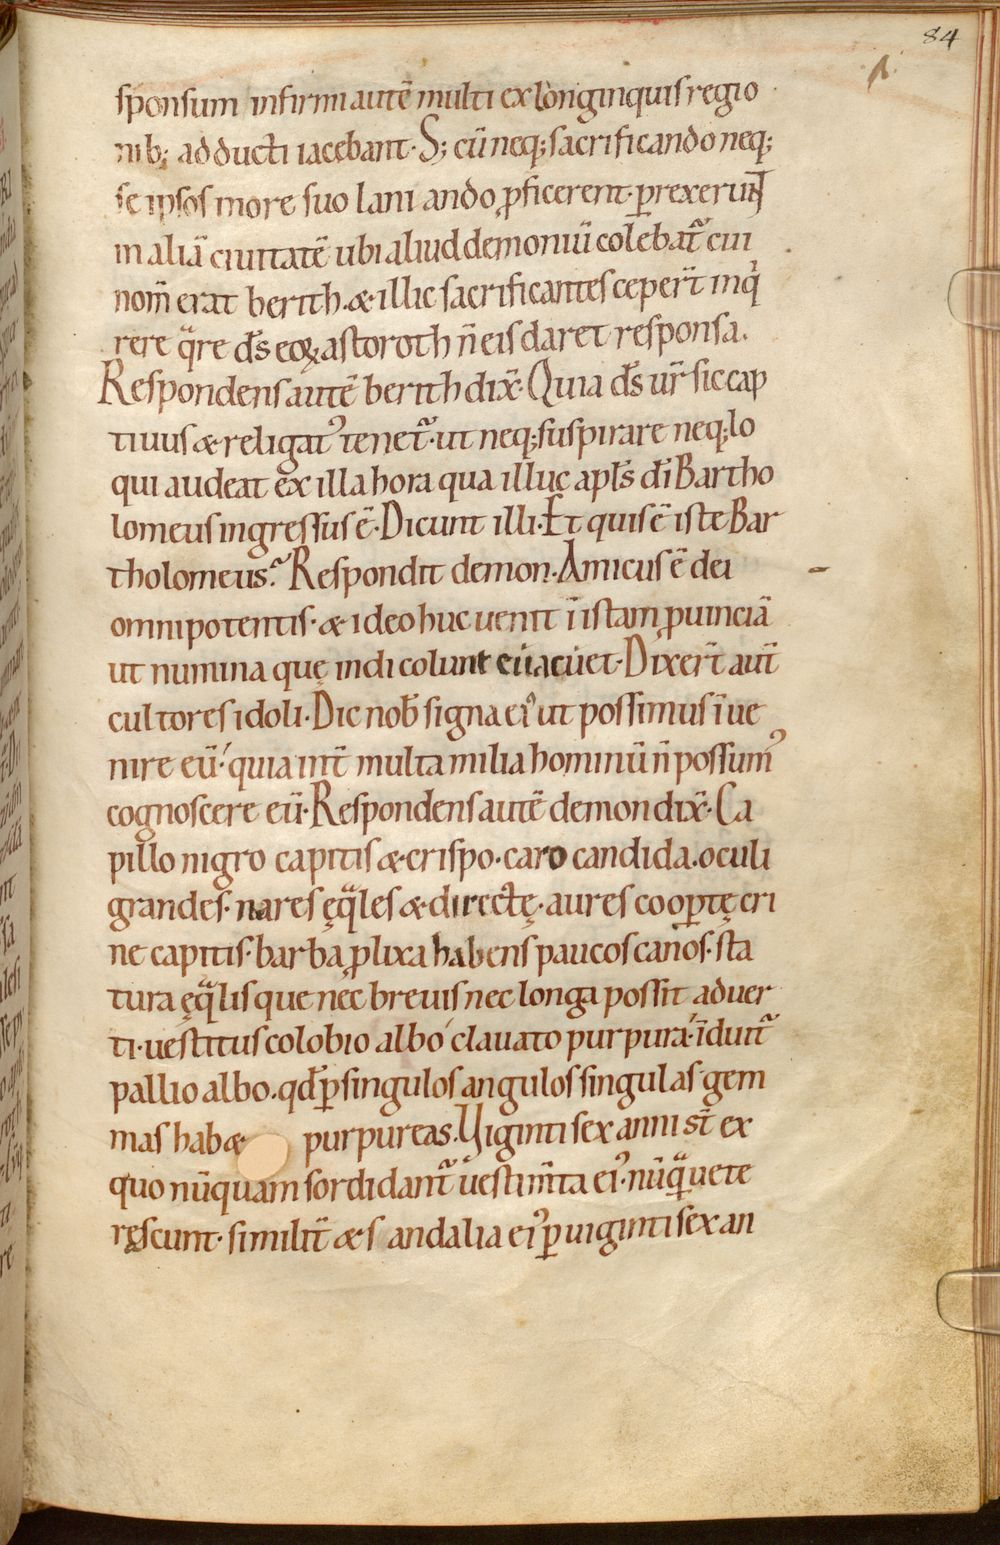 84
sponsum infirmi autē multi ex longinquis regio
nib; adducti iacebant. S; cū neq; sacrificando neq;
se ipsos more suo laniando ꝓficerent. ꝑrexerunt
in aliā ciuitatē ubi aliud demoniū colebat᷑ cui
nom̄ erat berith. & illic sacrificantes ceper̄t inq͛
rere q̄re d̄s eoꝝ astoroth n̄ eis daret responsa.
Respondens autē berith dix̄. Quia d̄s ur̄ sic cap
tiuus & religat᷒ tenet᷑. ut neq; suspirare neq; lo
qui audeat ex illa hora qua illuc apl̄s dī Bartho
lomeus ingressus ē. Dicunt illi. Et quis ē iste Bar
tholomeus? Respondit demon. Amicus ē dei
omnipotentis. & ideo huc uenit ī istam ꝓuinciā
ut numina quę indi colunt euacuet. Dixer̄t aut̄
cultores idoli. Dic nob̄ signa ei᷒ ut possimus īue
nire eū. quia int̄ multa milia hominū n̄ possum᷒
cognoscere eū. Respondens autē demon dix̄. Ca
pillo nigro capitis & crispo. caro candida. oculi
grandes. nares ęq̄les & directę. aures coopꝑtę cri
ne capitis. barba ꝓlixa habens paucos canos. sta
tura ęq̄lis que nec breuis nec longa possit aduer
ti. uestitus colobio albo clauato purpura. īduit᷑
pallio albo. qd̄ ꝑ singulos angulos singulas gem
mas hab& purpureas. Viginti sex anni st̄ ex
quo nūquam sordidant᷑ uestim̄ta ei᷒. nūq̄ uete
rescunt. similit̄ & sandalia ei᷒ ꝑ uiginti sex an